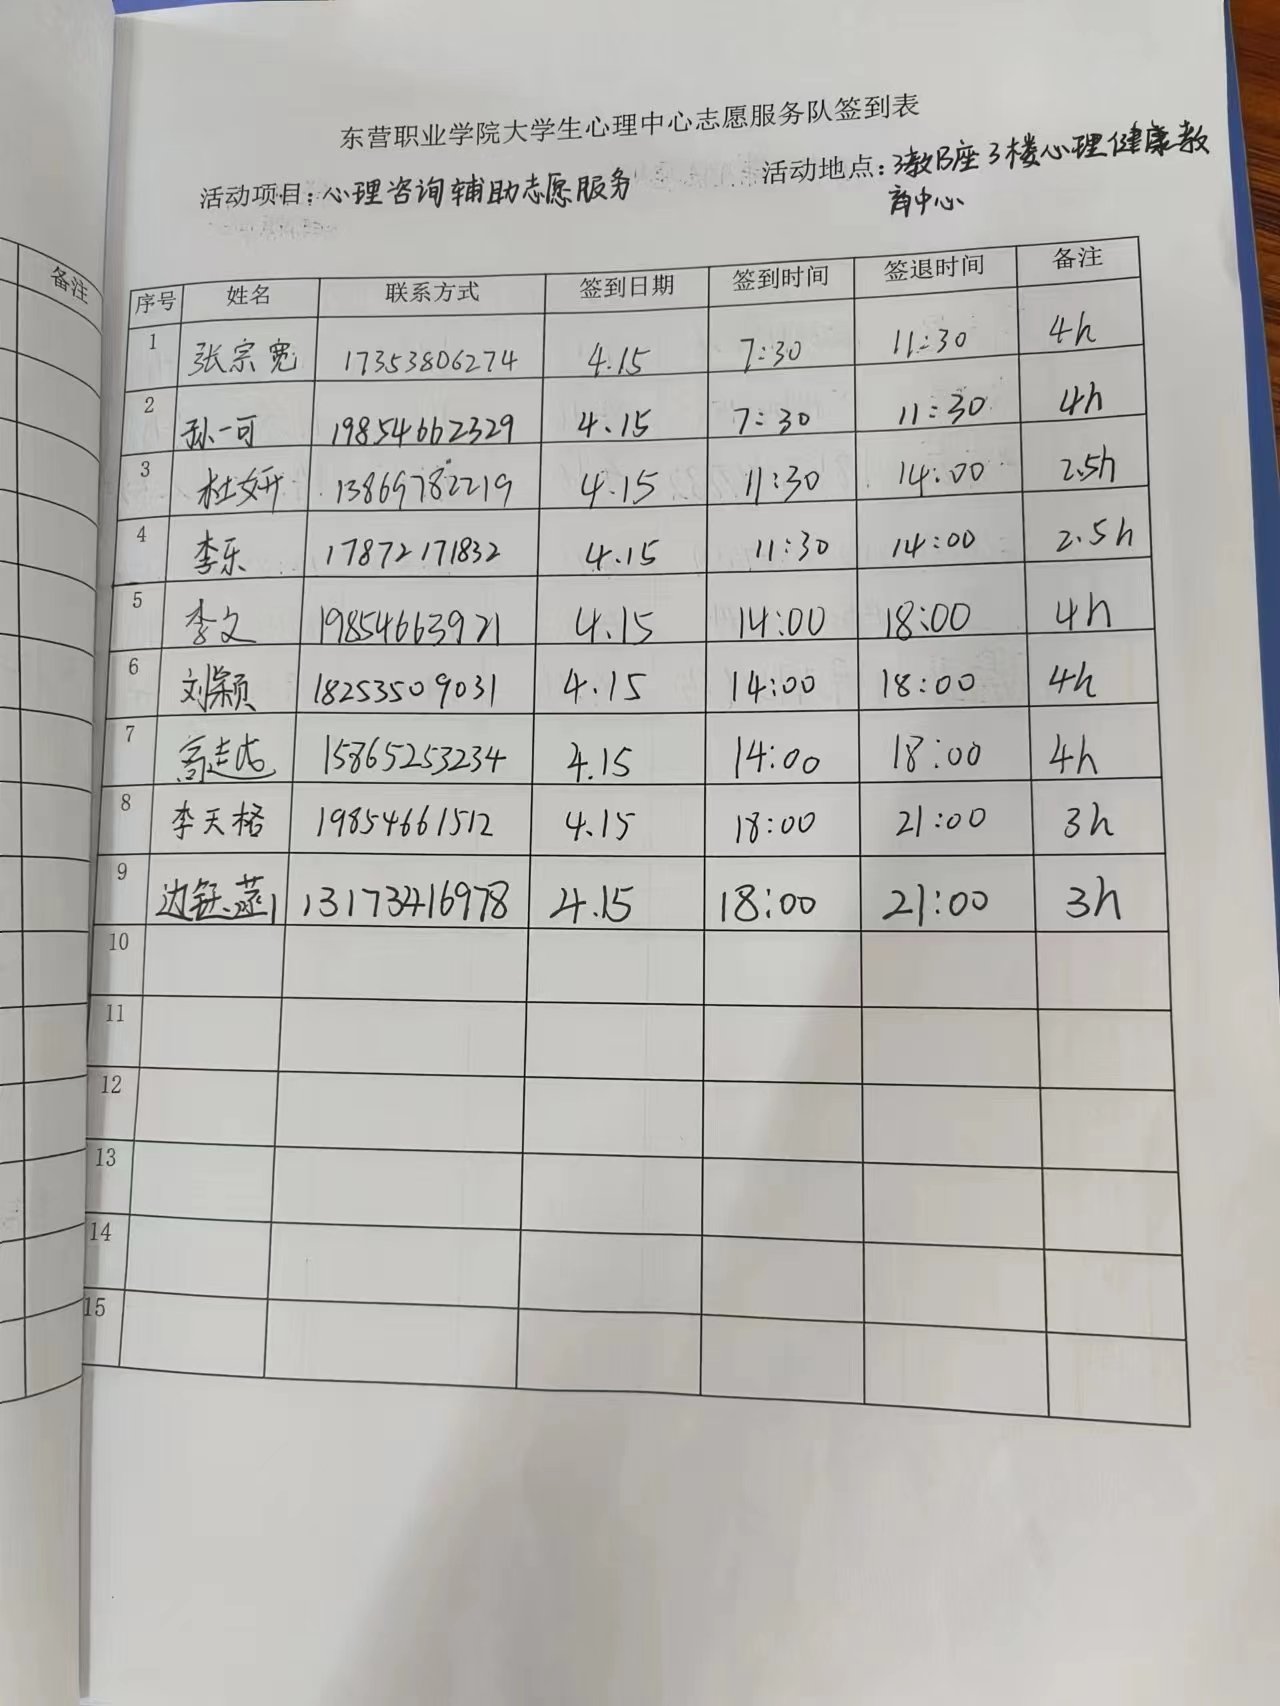 东营职业学院大学生心理中心志愿服务队签到表
活动项目：心理咨询辅助志愿服务 活动地点：3教B座3楼心理健康教
育中心
备注
序号 姓名 联系方式 签到日期 签到时间 签退时间 备注
1 张宗宽 17353806274 4.15 7:30 11:30 4h
2 孙一可 19854662329 4.15 7:30 11:30 4h
3 杜妍 13869782219 4.15 11:30 14:00 2.5h
4 李乐 17872171832 4.15 11:30 14:00 2.5h
5 李文 19854663921 4.15 14:00 18:00 4h
6 刘颖 18253509031 4.15 14:00 18:00 4h
7 高志 15865253234 4.15 14:00 18:00 4h
8 李天格 19854661512 4.15 18:00 21:00 3h
9 边钰 13173416978 4.15 18:00 21:00 3h
10
11
12
13
14
15